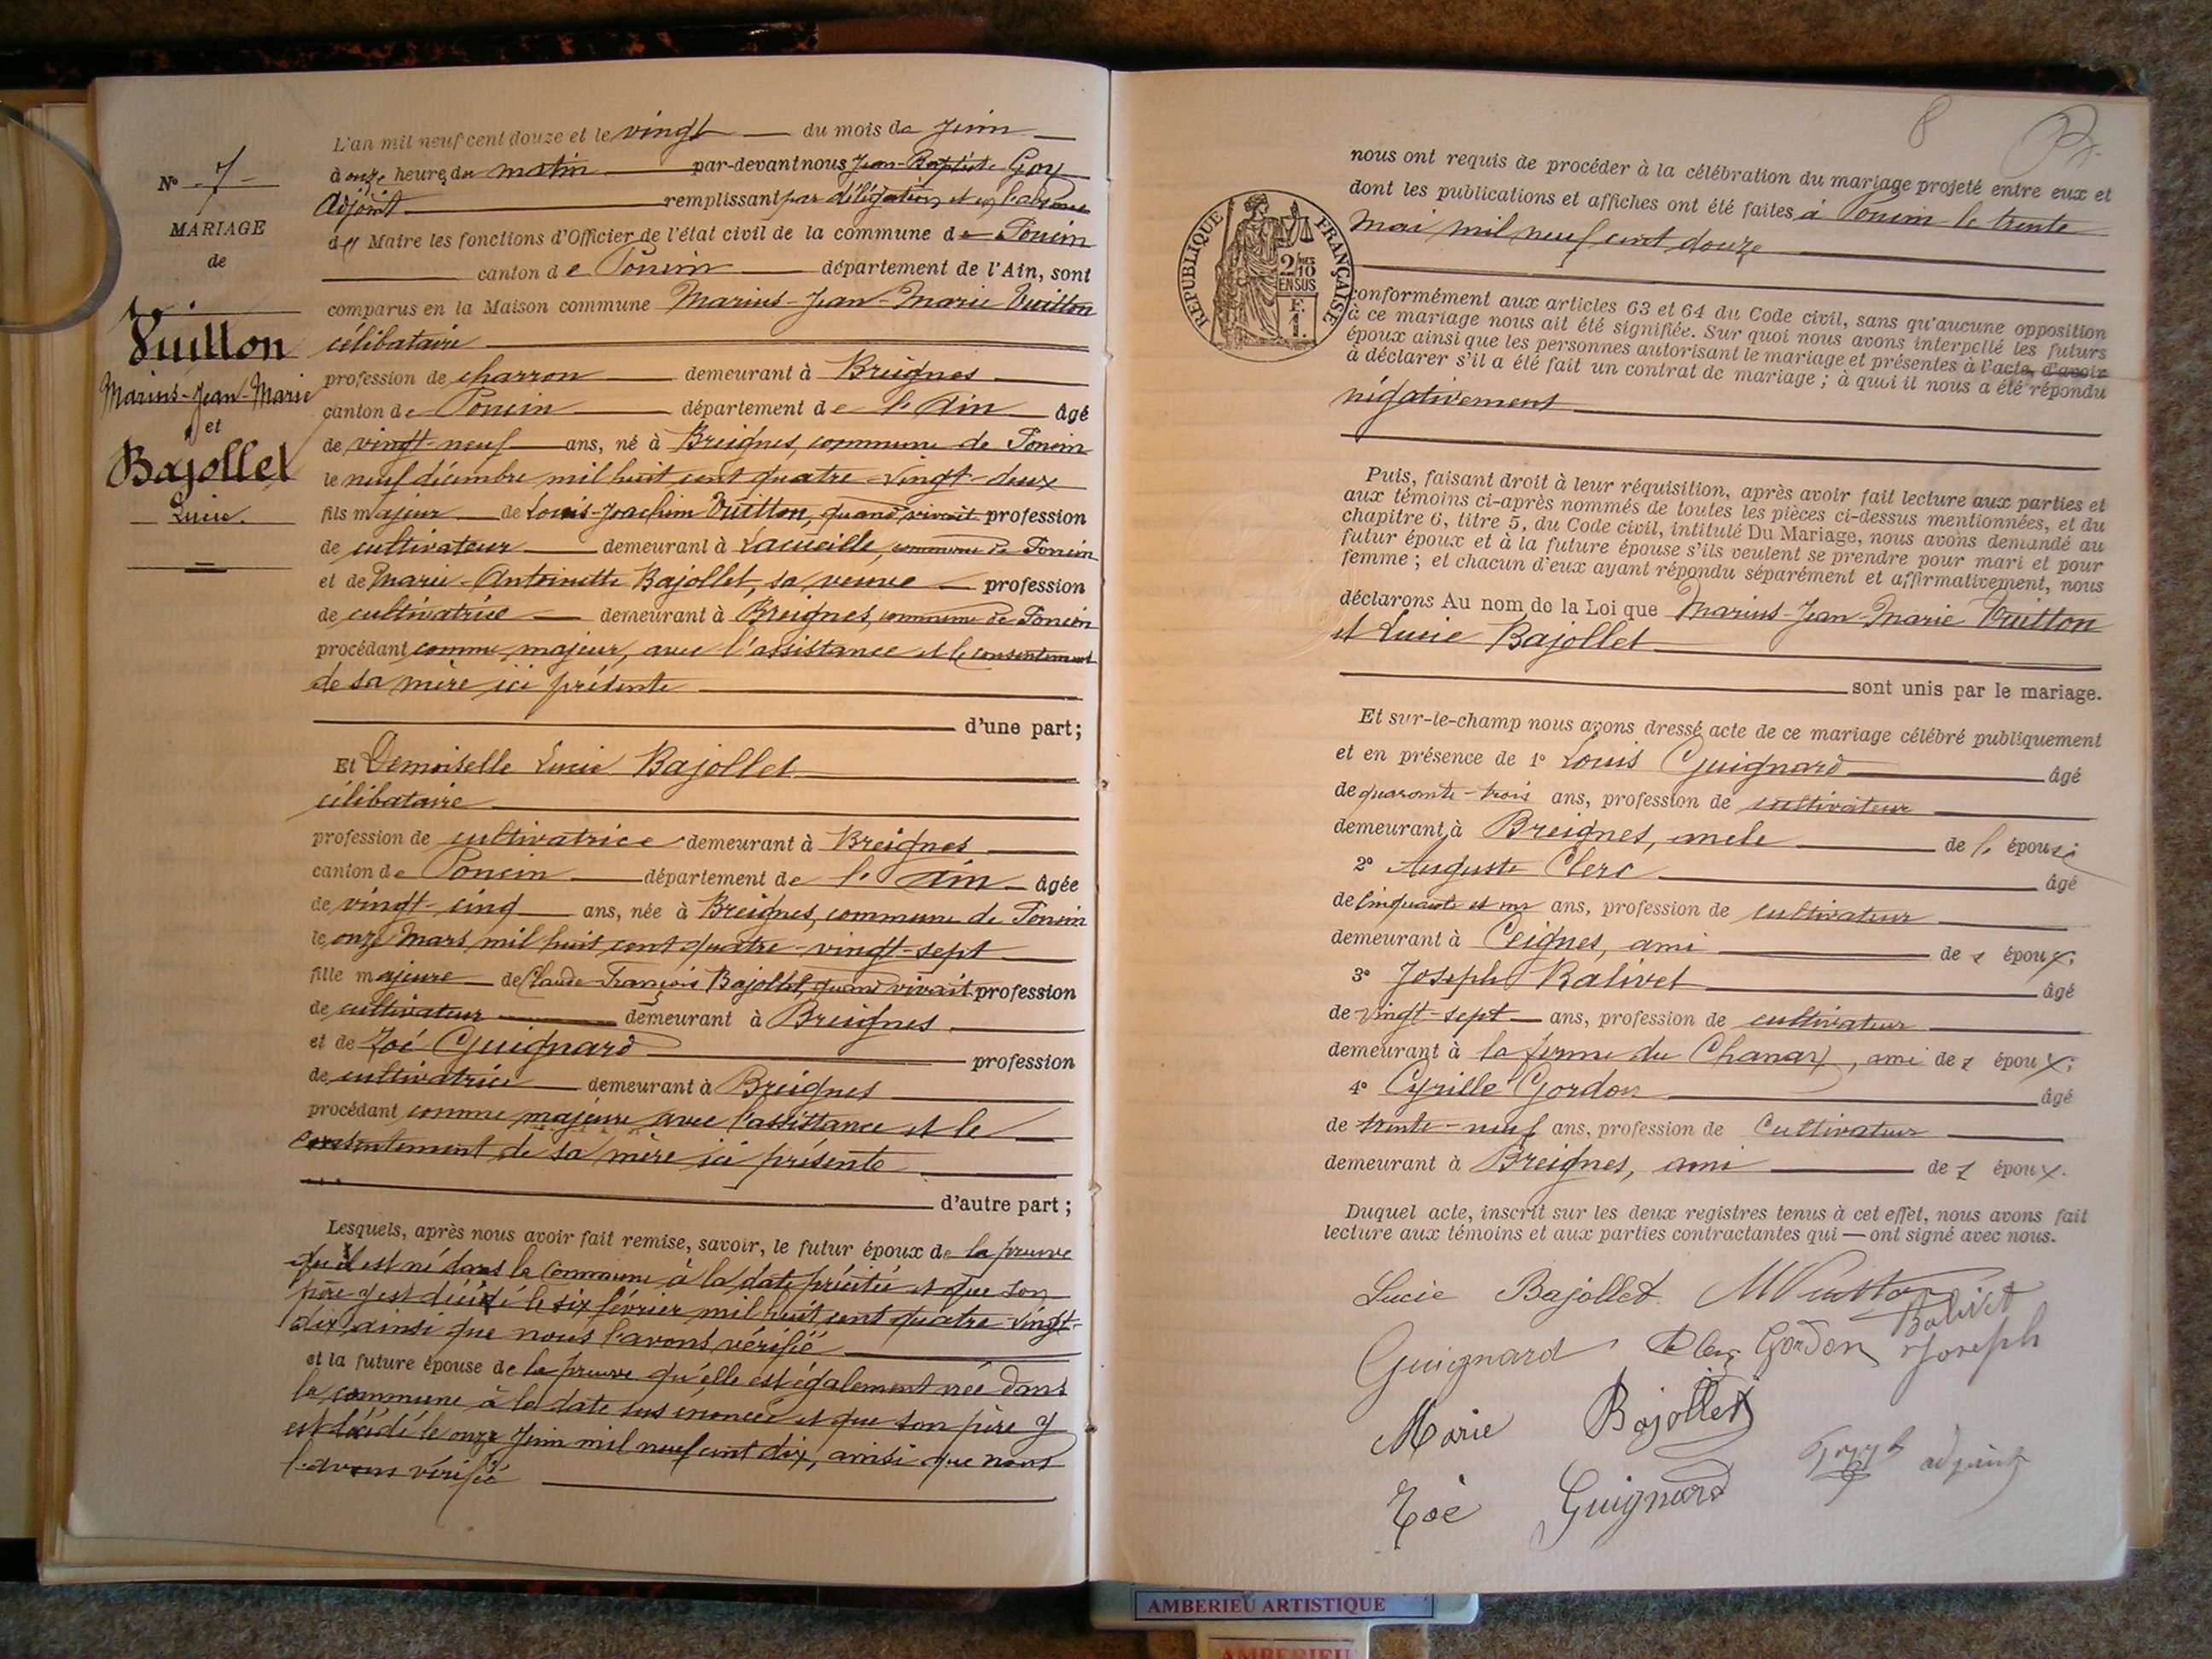 N° 7
MARIAGE
de
Vuitton
Marius-Jean-Marie
et
Bajollet
Lucie.
L'an mil neuf cent douze et le vingt du mois de Juin
à onze heures du matin par-devant nous Jean-Baptiste Goy
Adjoint remplissant par délégation et en l'absence
du Maire les fonctions d'Officier de l'état civil de la commune de Poncin
canton de Poncin département de l'Ain, sont
comparus en la Maison commune Marius-Jean-Marie Vuitton
célibataire
profession de charron demeurant à Breignes
canton de Poncin département de l'Ain âgé
de vingt-neuf ans, né à Breignes, commune de Poncin
le neuf décembre mil huit cent quatre-vingt-deux
fils majeur de Louis-Joachim Vuitton, quand vivait profession
de cultivateur demeurant à Lacueille, commune de Poncin
et de Marie-Antoinette Bajollet, sa veuve profession
de cultivatrice demeurant à Breignes, commune de Poncin
procédant comme majeur, avec l'assistance et le consentement
de sa mère ici présente
d'une part;
Et Demoiselle Lucie Bajollet
célibataire
profession de cultivatrice demeurant à Breignes
canton de Poncin département de l'Ain âgée
de vingt-cinq ans, née à Breignes, commune de Poncin
le onze Mars mil huit cent quatre-vingt-sept
fille majeure de Claude-François Bajollet, quand vivait profession
de cultivateur demeurant à Breignes
et de Zoé Guignard profession
de cultivatrice demeurant à Breignes
procédant comme majeure avec l'assistance et le
consentement de sa mère ici présente
d'autre part;
Lesquels, après nous avoir fait remise, savoir, le futur époux de la preuve
qu'il est né dans la commune à la date précitée et que son
père y est décédé le six février mil huit cent quatre-vingt-
dix ainsi que nous l'avons vérifié
et la future épouse de la preuve qu'elle est également née dans
la commune à la date sus énoncée et que son père y
est décédé le onze Juin mil neuf cent dix, ainsi que nous
l'avons vérifié
8
nous ont requis de procéder à la célébration du mariage projeté entre eux et
dont les publications et affiches ont été faites à Poncin le trente
mai mil neuf cent douze
REPUBLIQUE FRANÇAISE
2/10
EN SUS
F.
1
conformément aux articles 63 et 64 du Code civil, sans qu'aucune opposition
à ce mariage nous ait été signifiée. Sur quoi nous avons interpellé les futurs
époux ainsi que les personnes autorisant le mariage et présentes à l'acte, d'avoir
à déclarer s'il a été fait un contrat de mariage; à quoi il nous a été répondu
négativement
Puis, faisant droit à leur réquisition, après avoir fait lecture aux parties et
aux témoins ci-après nommés de toutes les pièces ci-dessus mentionnées, et du
chapitre 6, titre 5, du Code civil, intitulé Du Mariage, nous avons demandé au
futur époux et à la future épouse s'ils veulent se prendre pour mari et pour
femme; et chacun d'eux ayant répondu séparément et affirmativement, nous
déclarons Au nom de la Loi que Marius-Jean-Marie Vuitton
et Lucie Bajollet
sont unis par le mariage.
Et sur-le-champ nous avons dressé acte de ce mariage célébré publiquement
et en présence de 1° Louis Guignard âgé
de quarante-trois ans, profession de cultivateur
demeurant à Breignes, oncle de l'épouse
2° Auguste Clerc âgé
de cinquante et un ans, profession de cultivateur
demeurant à Ceignes, ami de s époux;
3° Joseph Balivet âgé
de vingt-sept ans, profession de cultivateur
demeurant à la ferme du Chanay, ami de s époux;
4° Cyrille Gordon âgé
de trente-neuf ans, profession de Cultivateur
demeurant à Breignes, ami de s époux.
Duquel acte, inscrit sur les deux registres tenus à cet effet, nous avons fait
lecture aux témoins et aux parties contractantes qui ont signé avec nous.
Lucie Bajollet MVuitton
Guignard Clerc Gordon Balivet Joseph
Marie Bajollet
Zoé Guignard Goy adjoint
AMBERIEU ARTISTIQUE
AMBERIEU